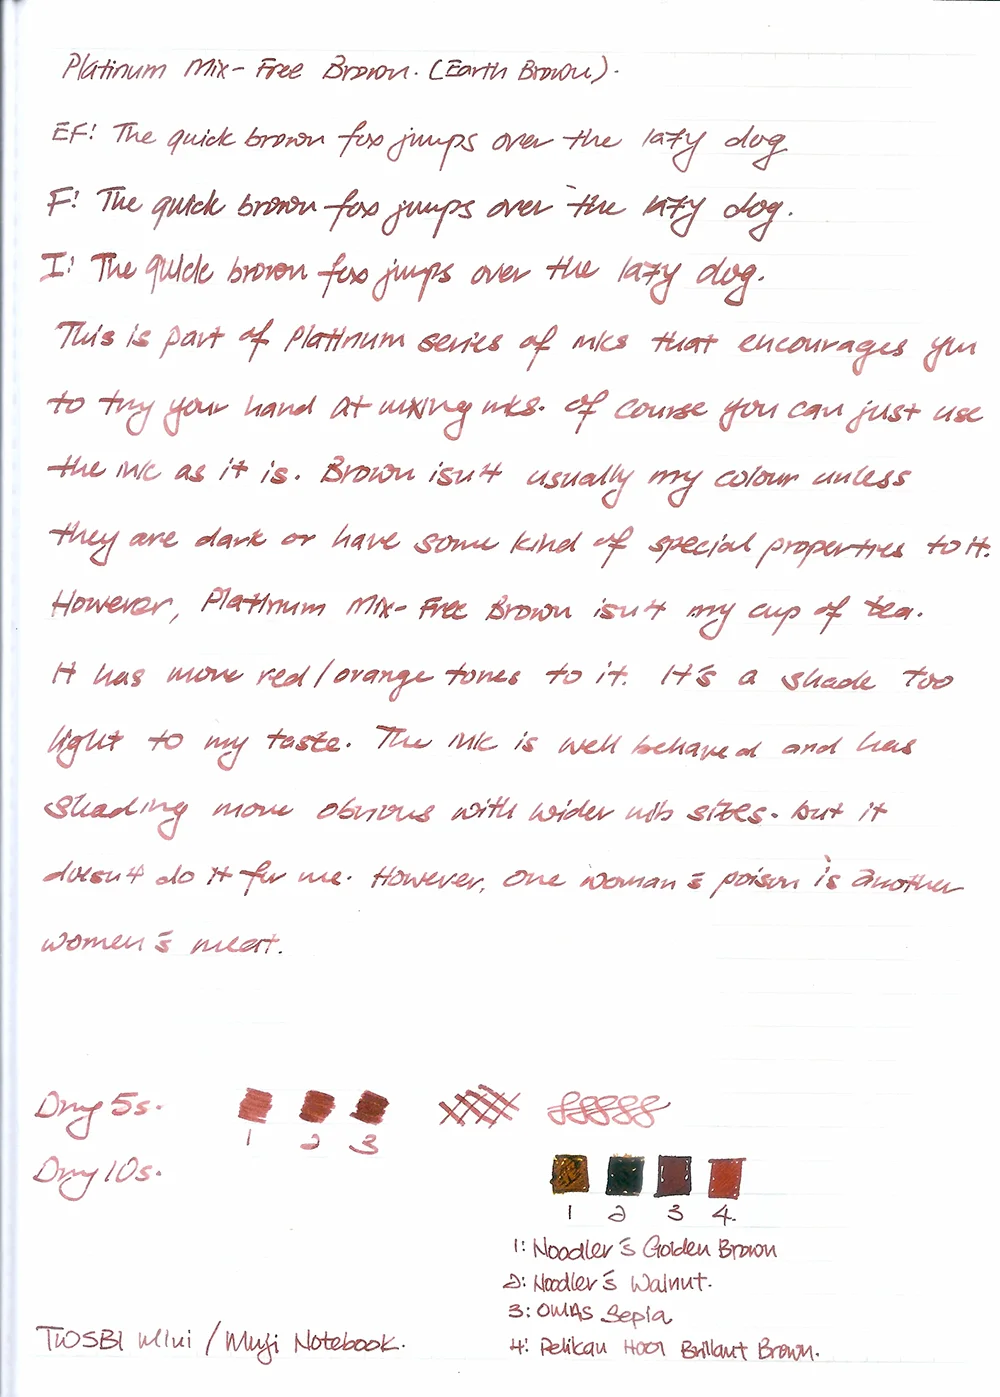 Platinum Mix-Free Brown. (Earth Brown).
EF: The quick brown fox jumps over the lazy dog
F: The quick brown fox jumps over the lazy dog.
I: The quick brown fox jumps over the lazy dog.
This is part of Platinum series of inks that encourages you
to try your hand at mixing inks. Of course you can just use
the ink as it is. Brown isn't usually my colour unless
they are dark or have some kind of special properties to it.
However, Platinum Mix-Free Brown isn't my cup of tea.
It has more red/orange tones to it. It's a shade too
light to my taste. The ink is well behaved and has
shading more obvious with wider nib sizes. but it
doesn't do it for me. However, one woman's poison is another
women's meat.
Dry 5s.
1 2 3
Dry 10s.
1 2 3 4.
1: Noodler's Golden Brown
2: Noodler's Walnut.
3: OMAS Sepia
TWSBI Mini / Muji Notebook.
4: Pelikan 4001 Brillant Brown.